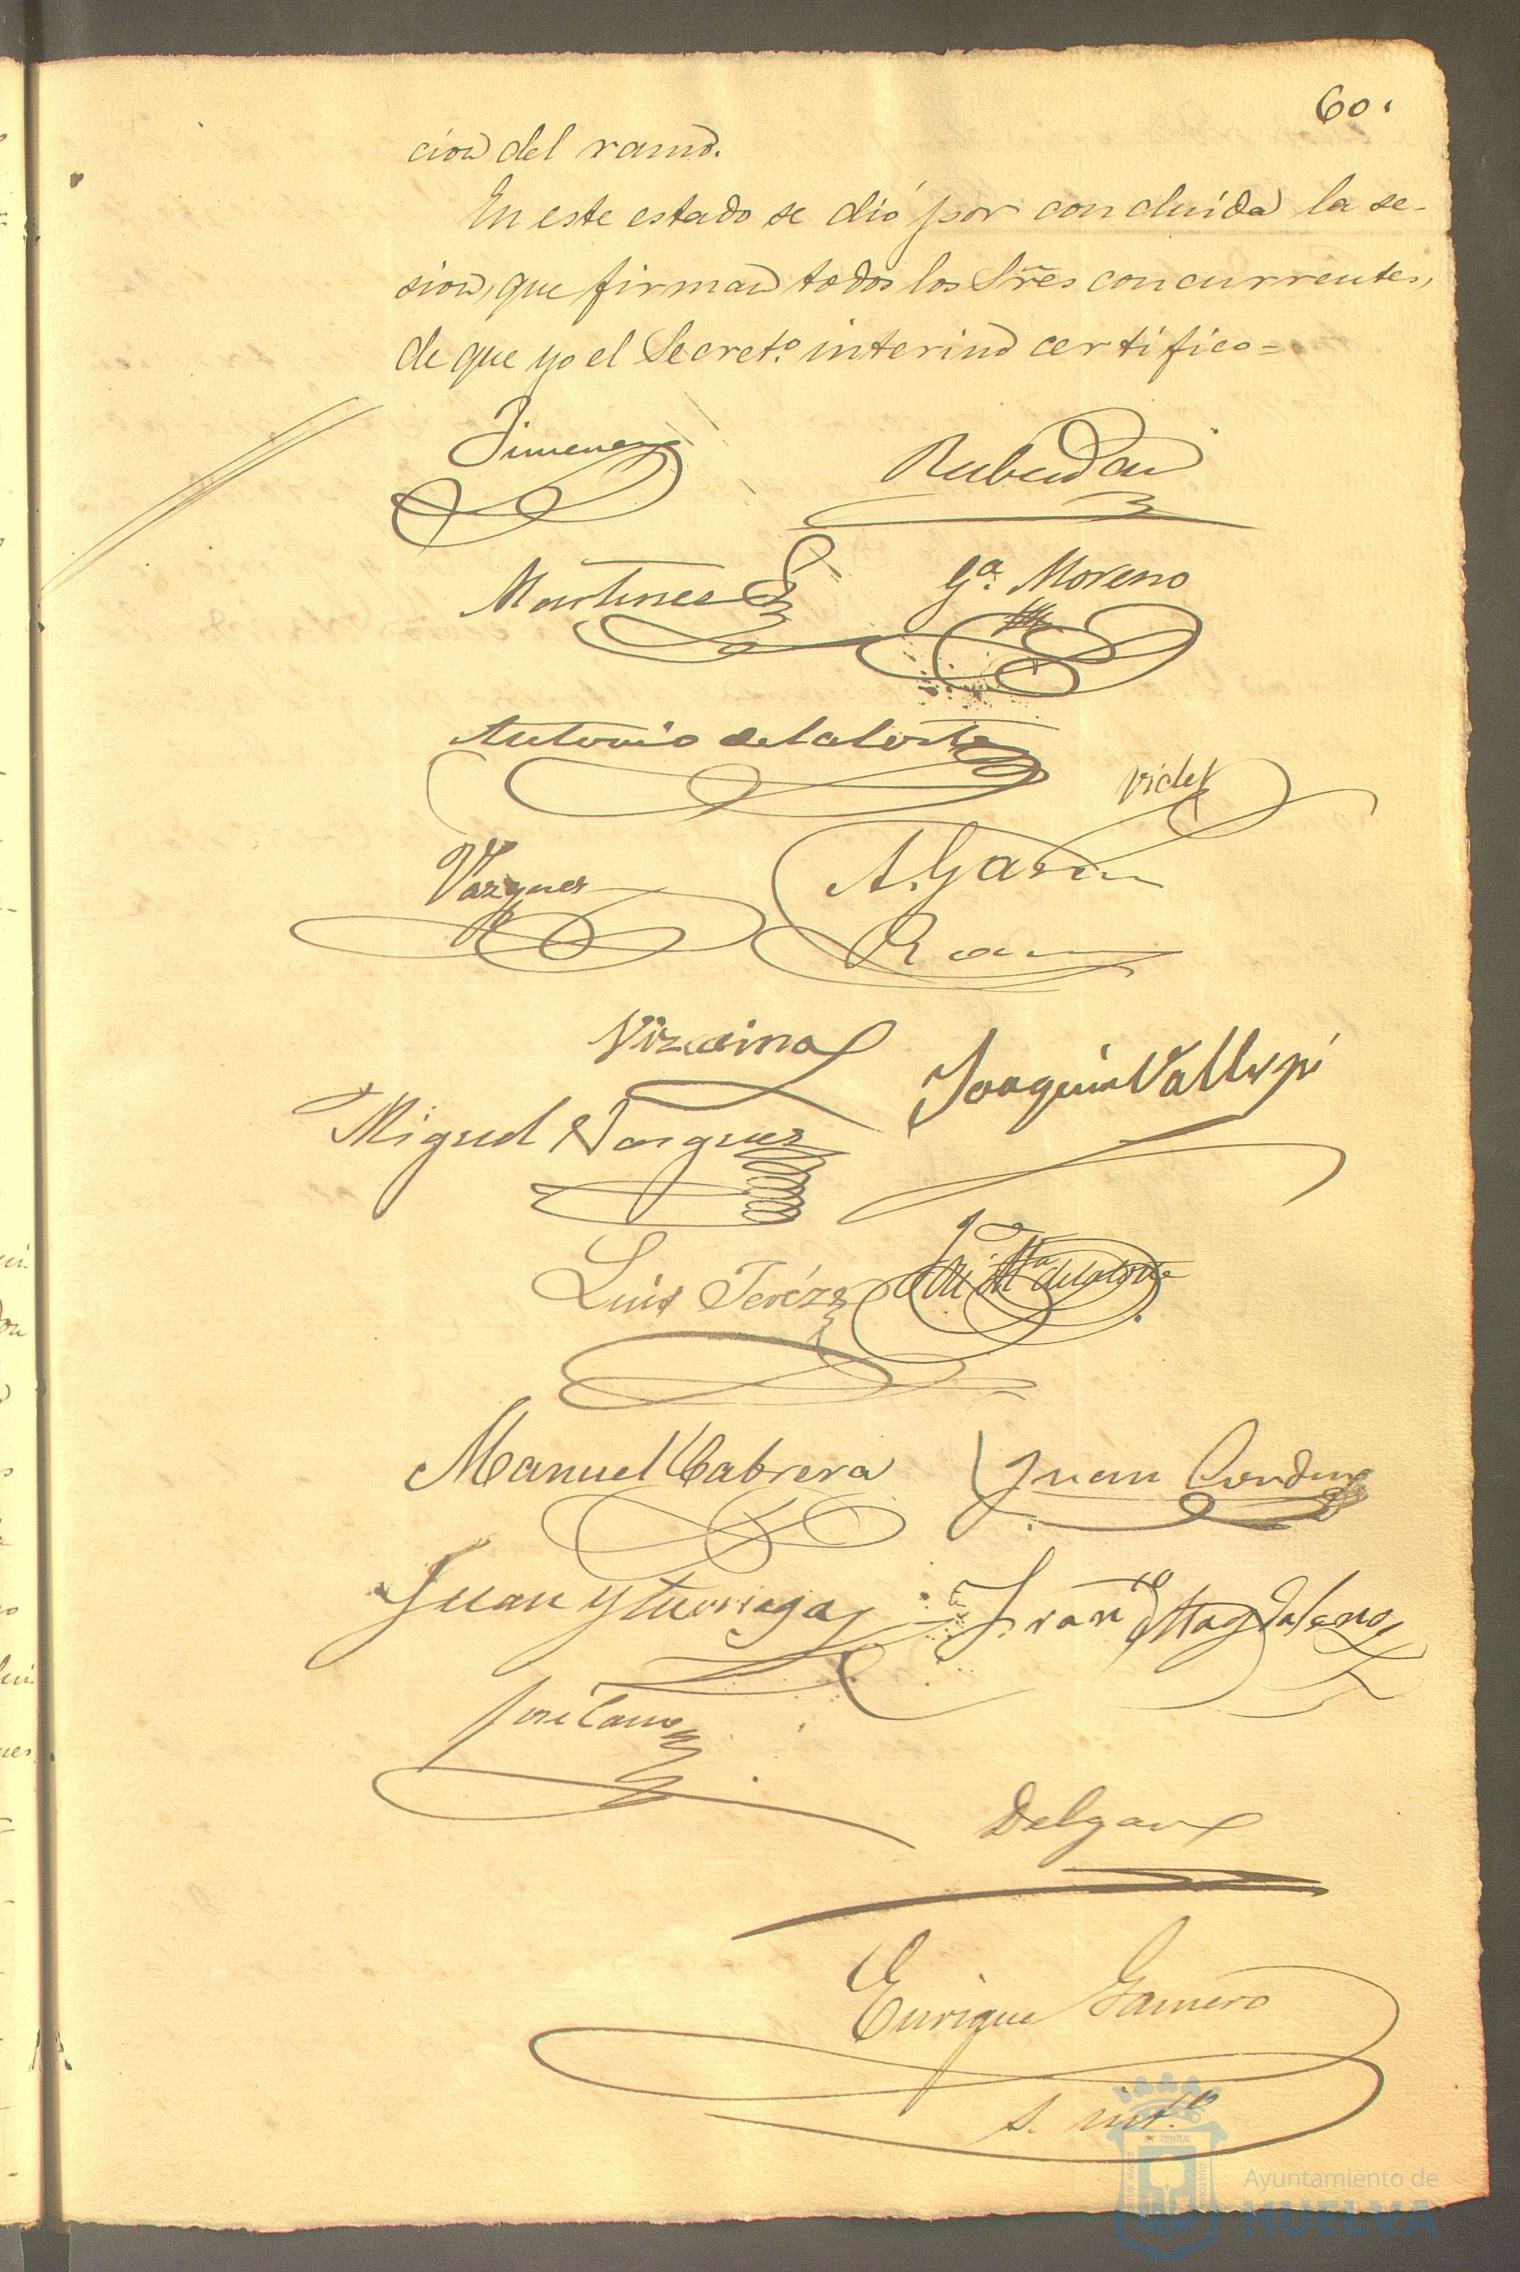 60.
cion del ramo.
En este estado se dió por concluida la se-
sion, que firman todos los Sres concurrentes,
de que yo el Secret.o interino certifico=
Jimenez
Martinez
Ga. Moreno
Antonio de la Corte
Videl
Vazquez
A. Garcia
Vizcaino
Joaquin Vallespi
Miguel Vazquez
Luis Peréz
José Ma de la Corte
Manuel Cabrera
Juan
Juan Yturriaga
Franco Magdaleno
José
Enrique Gamero
S. int.o
Ayuntamiento de
HUELVA